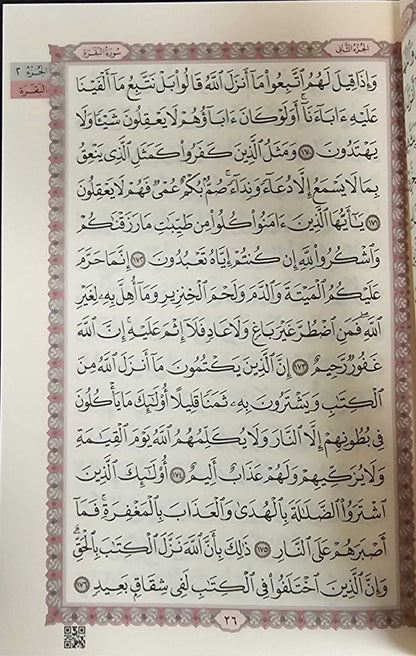 الجزء الثاني
سورة البقرة
الجزء ٢
البقرة
وَإِذَا قِيلَ لَهُمُ ٱتَّبِعُوا۟ مَآ أَنزَلَ ٱللَّهُ قَالُوا۟ بَلْ نَتَّبِعُ مَآ أَلْفَيْنَا
عَلَيْهِ ءَابَآءَنَآ ۗ أَوَلَوْ كَانَ ءَابَآؤُهُمْ لَا يَعْقِلُونَ شَيْـًٔا وَلَا
يَهْتَدُونَ ١٧٠ وَمَثَلُ ٱلَّذِينَ كَفَرُوا۟ كَمَثَلِ ٱلَّذِى يَنْعِقُ
بِمَا لَا يَسْمَعُ إِلَّا دُعَآءً وَنِدَآءً ۚ صُمٌّۢ بُكْمٌ عُمْىٌ فَهُمْ لَا يَعْقِلُونَ
١٧١ يَـٰٓأَيُّهَا ٱلَّذِينَ ءَامَنُوا۟ كُلُوا۟ مِن طَيِّبَـٰتِ مَا رَزَقْنَـٰكُمْ
وَٱشْكُرُوا۟ لِلَّهِ إِن كُنتُمْ إِيَّاهُ تَعْبُدُونَ ١٧٢ إِنَّمَا حَرَّمَ
عَلَيْكُمُ ٱلْمَيْتَةَ وَٱلدَّمَ وَلَحْمَ ٱلْخِنزِيرِ وَمَآ أُهِلَّ بِهِۦ لِغَيْرِ
ٱللَّهِ ۖ فَمَنِ ٱضْطُرَّ غَيْرَ بَاغٍ وَلَا عَادٍ فَلَآ إِثْمَ عَلَيْهِ ۚ إِنَّ ٱللَّهَ
غَفُورٌ رَّحِيمٌ ١٧٣ إِنَّ ٱلَّذِينَ يَكْتُمُونَ مَآ أَنزَلَ ٱللَّهُ مِنَ
ٱلْكِتَـٰبِ وَيَشْتَرُونَ بِهِۦ ثَمَنًا قَلِيلًا ۙ أُو۟لَـٰٓئِكَ مَا يَأْكُلُونَ
فِى بُطُونِهِمْ إِلَّا ٱلنَّارَ وَلَا يُكَلِّمُهُمُ ٱللَّهُ يَوْمَ ٱلْقِيَـٰمَةِ
وَلَا يُزَكِّيهِمْ وَلَهُمْ عَذَابٌ أَلِيمٌ ١٧٤ أُو۟لَـٰٓئِكَ ٱلَّذِينَ
ٱشْتَرَوُا۟ ٱلضَّلَـٰلَةَ بِٱلْهُدَىٰ وَٱلْعَذَابَ بِٱلْمَغْفِرَةِ ۚ فَمَآ
أَصْبَرَهُمْ عَلَى ٱلنَّارِ ١٧٥ ذَٰلِكَ بِأَنَّ ٱللَّهَ نَزَّلَ ٱلْكِتَـٰبَ بِٱلْحَقِّ ۗ
وَإِنَّ ٱلَّذِينَ ٱخْتَلَفُوا۟ فِى ٱلْكِتَـٰبِ لَفِى شِقَاقٍۭ بَعِيدٍ ١٧٦
٢٦